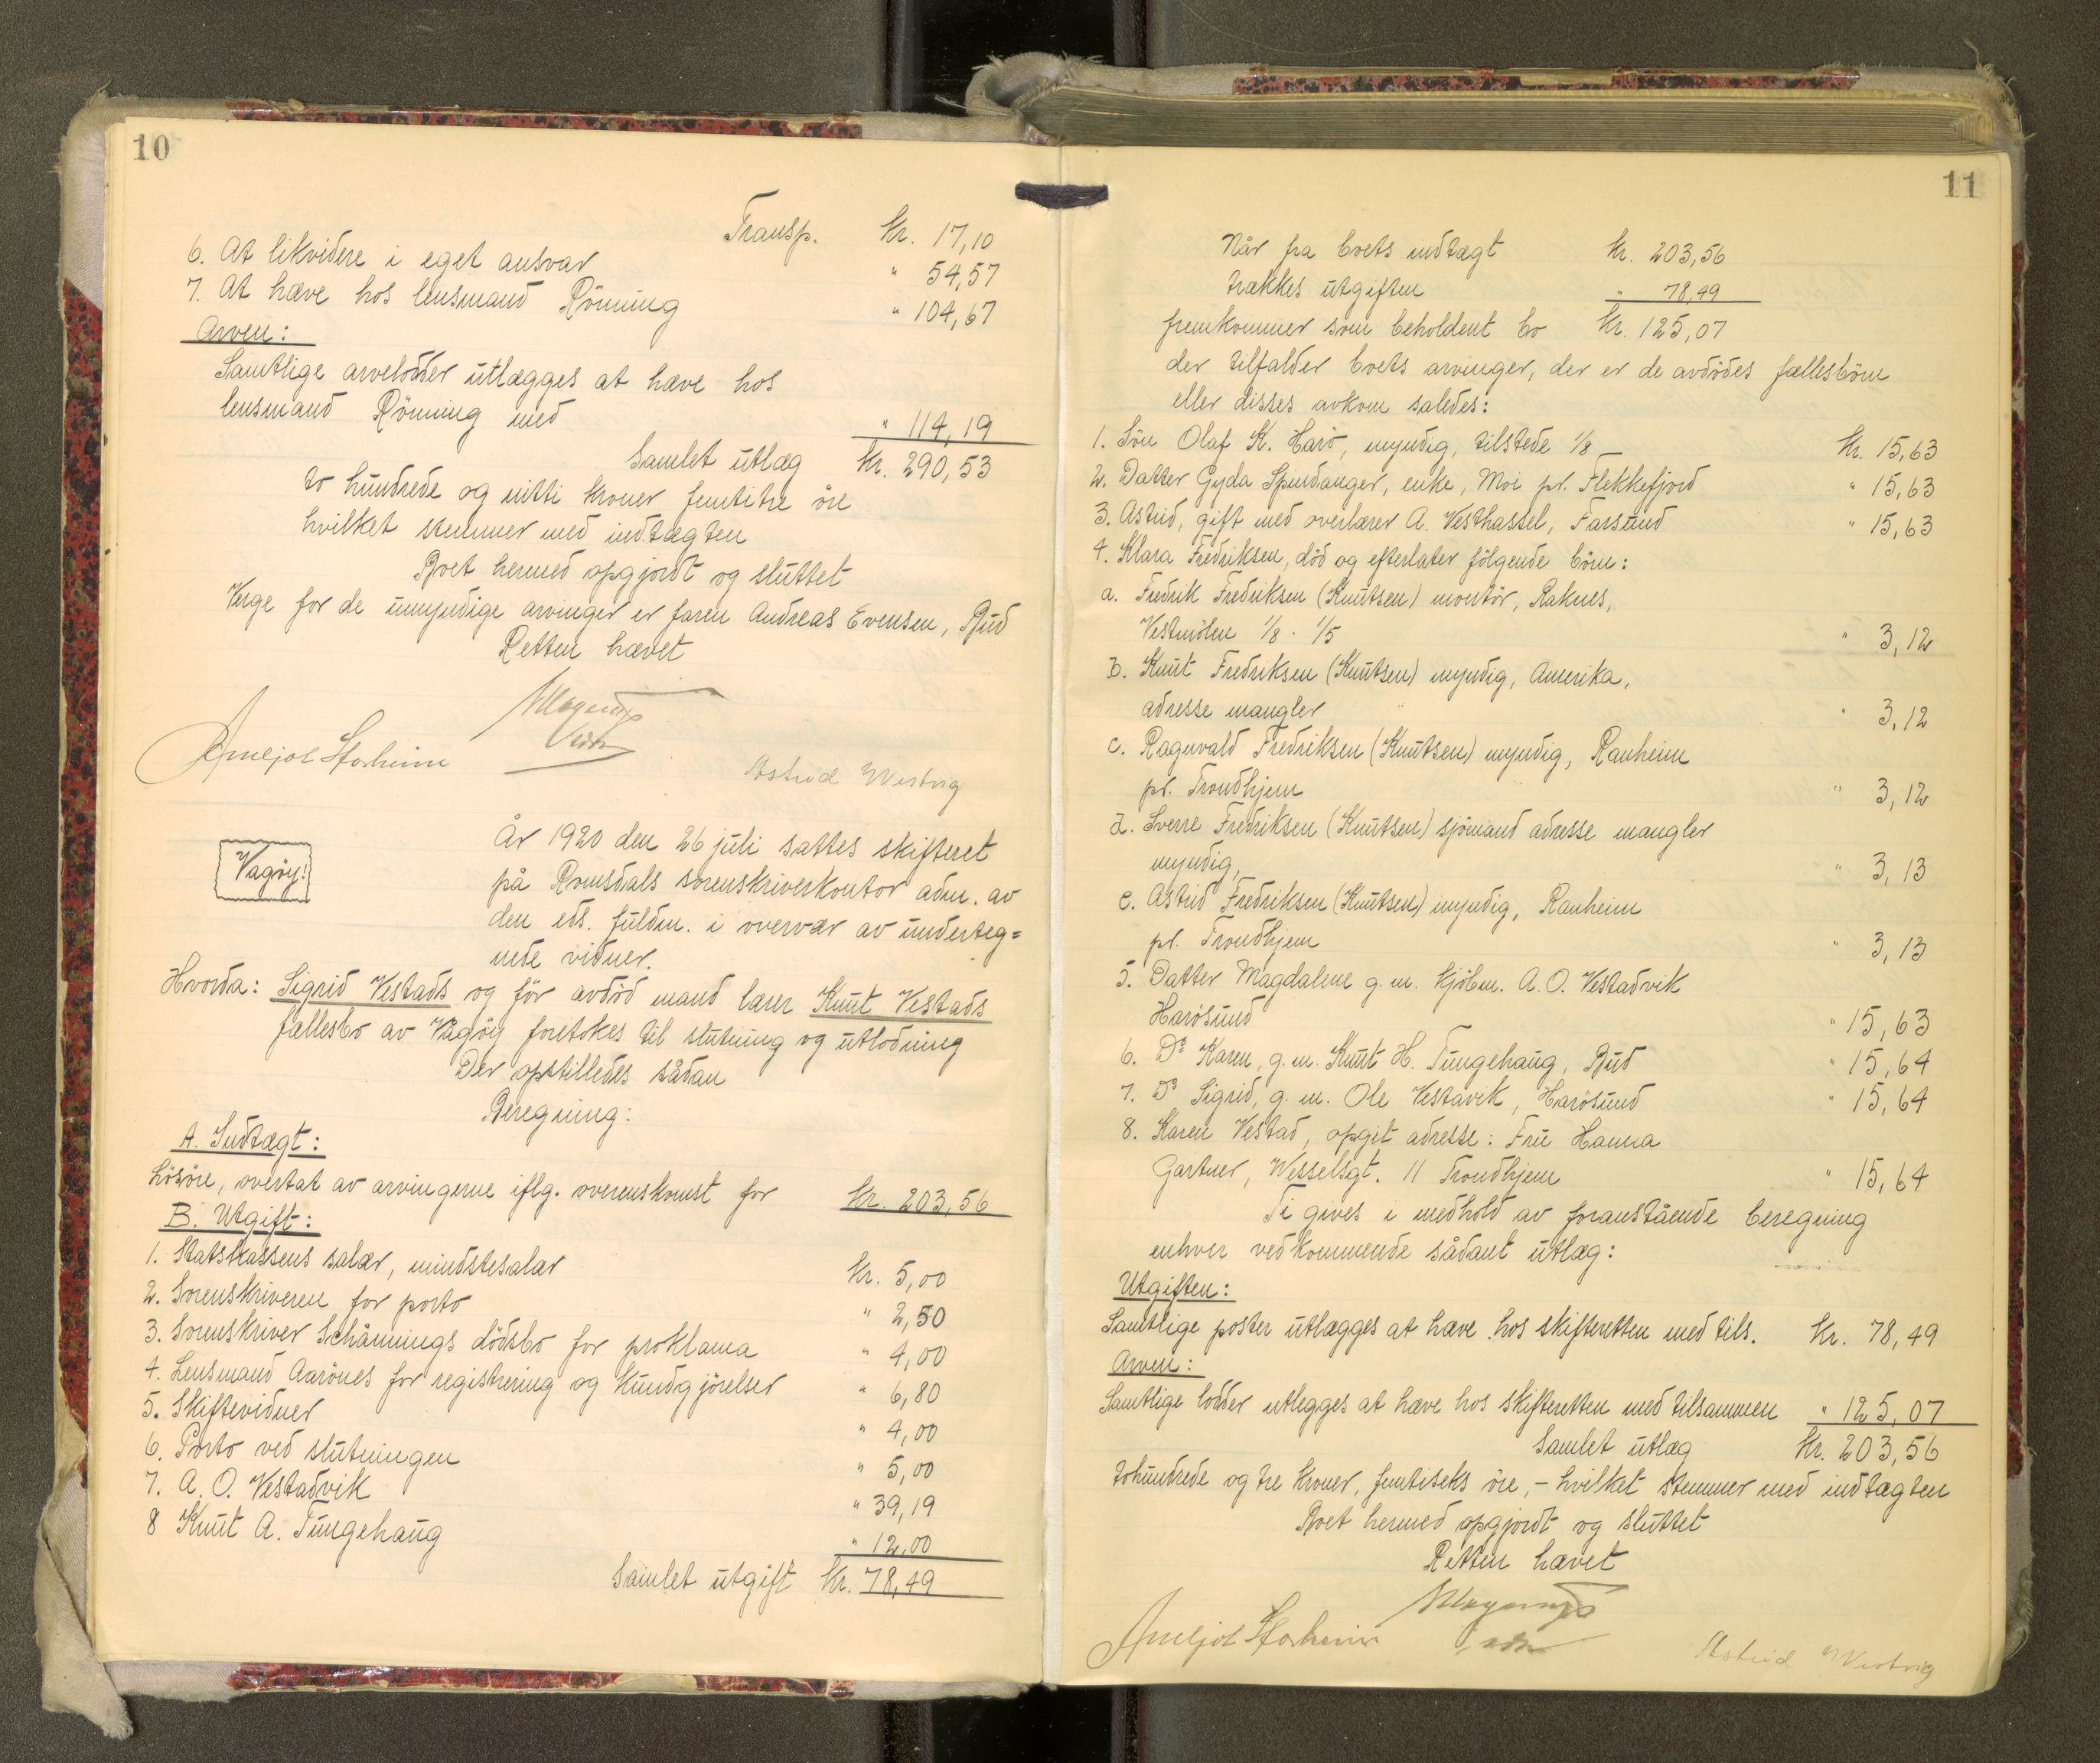 10
Transp. Kr. 17,10
6. At likvidere i eget ansvar " 54,57
7. At hæve hos lensmand Rönning " 104,67
Arven:
Samtlige arvelodder utlægges at hæve hos
lensmand Rönning med " 114,19
Samlet utlæg Kr. 290,53
to hundrede og nitti kroner femtitre öre
hvilket stemmer med indtægten
Boet hermed opgjordt og sluttet
Verge for de umyndige arvinger er faren Andreas Evensen, Bud
Retten hævet
Astrid Westvig
Vagöy!
År 1920 den 26 juli sattes skifteret
på Romsdals sorenskriverkontor adm. av
den eds. fuldm. i overvær av underteg=
nede vidner.
Hvorda: Sigrid Vestads og för avdöd mand lærer Knut Vestads
fællesbo av Vågöy foretokes til slutning og utlodning
Der opstilledes sådan
Beregning:
A. Indtægt:
Lösöre, overtat av arvingerne iflg. overenskomst for Kr. 203,56
B. Utgift:
1. Statskassens salær, mindstesalær Kr. 5,00
2. Sorenskriveren for porto " 2,50
3. Sorenskriver Schånnings dödsbo for proklama " 4,00
4. Lensmand Aarönes for registrering og kundgjörelser " 6,80
5. Skiftevidner " 4,00
6. Porto ved slutningen " 5,00
7. A. O. Vestadvik " 39,19
8 Knut A. Tungehaug " 12,00
Samlet utgift Kr. 78,49
11
Når fra boets indtægt Kr. 203,56
trækkes utgiften " 78,49
fremkommer som beholdent bo Kr. 125,07
der tilfalder boets arvinger, der er de avdödes fællesbörn
eller disses avkom således:
1. Sön Olaf K. Harö, myndig, tilstede 1/8 Kr. 15,63
2. Datter Gyda Spindanger, enke, Moi pr. Flekkefjord " 15,63
3. Astrid, gift med overlærer A. Vesthassel, Farsund " 15,63
4. Klara Fredriksen, död og efterlater fölgende börn:
a. Fredrik Fredriksen (Knutsen) montör, Raknes,
Vestnölen 1/8 · 1/5 " 3,12
b. Knut Fredriksen (Knutsen) myndig, Amerika,
adresse mangler " 3,12
c. Ragnvald Fredriksen (Knutsen) myndig, Ranheim
pr. Trondhjem " 3,12
d. Sverre Fredriksen (Knutsen) sjömand adresse mangler
myndig, " 3,13
e. Astrid Fredriksen (Knutsen) myndig, Ranheim
pr. Trondhjem " 3,13
5. Datter Magdalene g. m. kjöbm. A. O. Vestadvik
Harösund " 15,63
6. Do Karen, g. m. Knut H. Tungehaug, Bud " 15,64
7. Do Sigrid, g. m. Ole Vestavik, Harösund " 15,64
8. Karen Vestad, opgit adresse: Fru Hanna
Gartner, Wesselsgt. 11 Trondhjem " 15,64
Ti gives i medhold av foranstående beregning
enhver vedkommende sådant utlæg:
Utgiften:
Samtlige poster utlægges at hæve hos skifteretten med tils. Kr. 78,49
Arven:
Samtlige lodder utlegges at hæve hos skifteretten med tilsammen " 125,07
Samlet utlæg Kr. 203,56
tohundrede og tre kroner, femtiseks öre, - hvilket stemmer med indtægten
Boet hermed opgjordt og sluttet
Retten hævet
Astrid Westvig